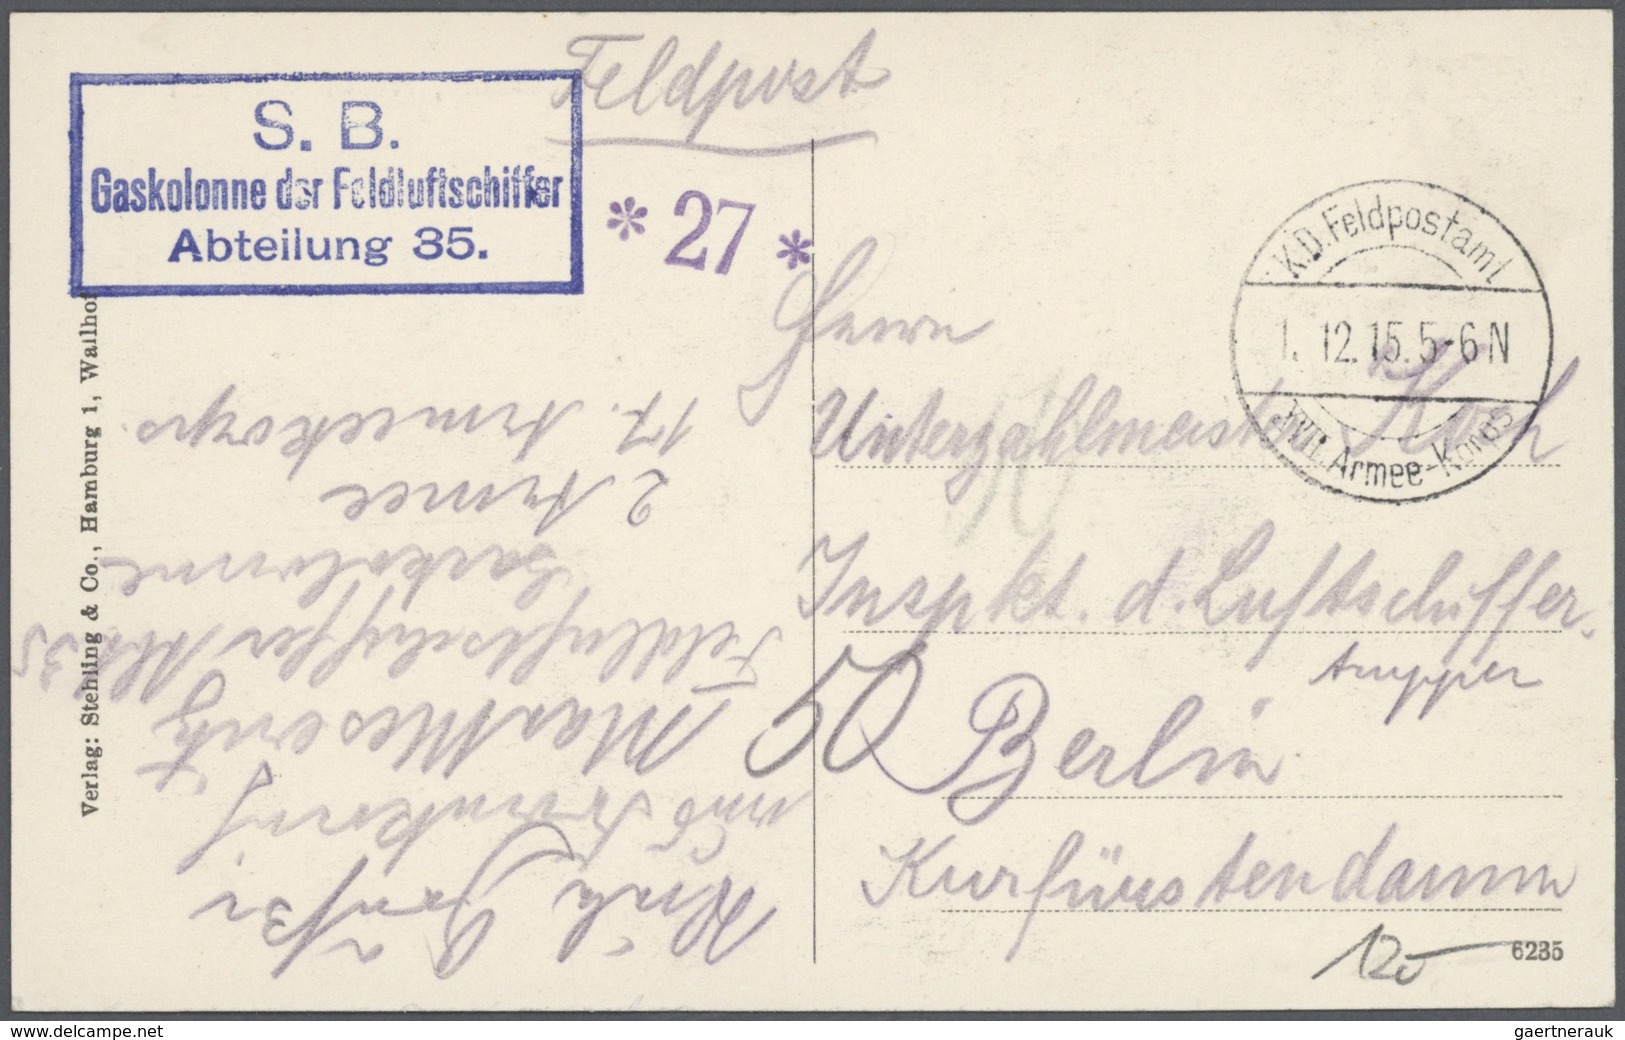 Feldpost
S. B.
Gaskolonne der Feldluftschiffer
Abteilung 35.
* 27 *
K.D. Feldpostamt
1. 12. 15. 5-6 N
XVII. Armee-Korps
Herrn
Unterzahlmeister Koch
Inspkt. d. Luftschiffer-
truppen
50 Berlin
Kurfürstendamm
120
6235
Verlag: Stehling & Co., Hamburg 1, Walhof
und
Feldluftschiffer Abt. 35
Gaskolonne
2. Armee
17. Armeekorps.
delcampe.net
gaertnerauk